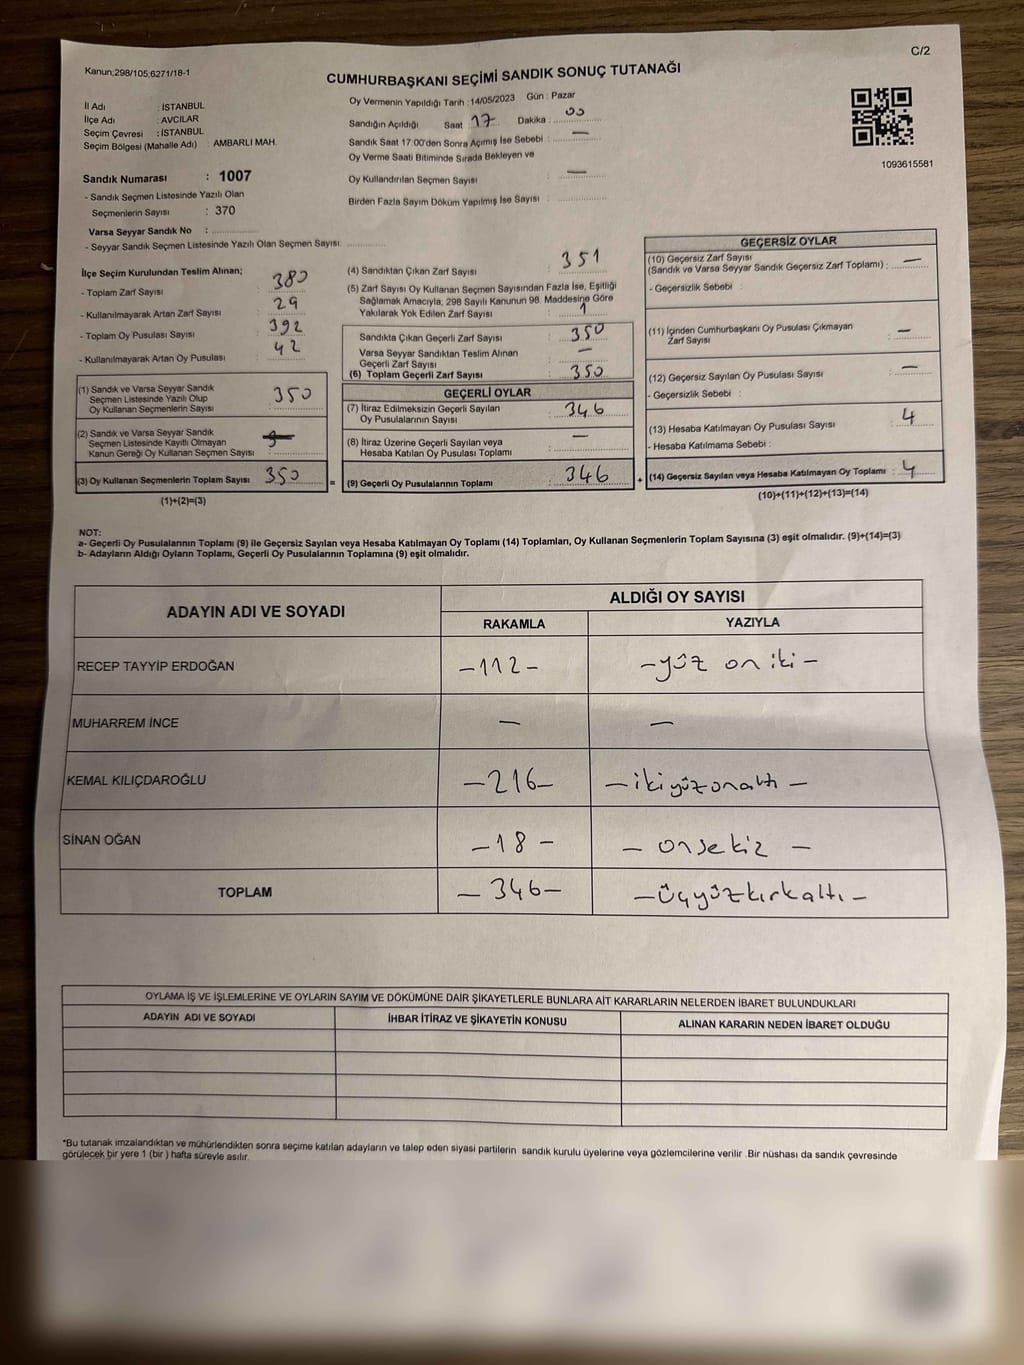 C/2
Kanun;298/105,6271/18-1
CUMHURBAŞKANI SEÇİMİ SANDIK SONUÇ TUTANAĞI
İl Adı : İSTANBUL
İlçe Adı : AVCILAR
Seçim Çevresi : İSTANBUL
Seçim Bölgesi (Mahalle Adı) : AMBARLI MAH.
Sandık Numarası : 1007
- Sandık Seçmen Listesinde Yazılı Olan
Seçmenlerin Sayısı : 370
Varsa Seyyar Sandık No :
- Seyyar Sandık Seçmen Listesinde Yazılı Olan Seçmen Sayısı
Oy Vermenin Yapıldığı Tarih : 14/05/2023 Gün : Pazar
Sandığın Açıldığı Saat 17 Dakika : 00
Sandık Saat 17:00'den Sonra Açımış İse Sebebi : —
Oy Verme Saati Bitiminde Sırada Bekleyen ve
Oy Kullandırılan Seçmen Sayısı : —
Birden Fazla Sayım Döküm Yapılmış İse Sayısı :
1093615581
İlçe Seçim Kurulundan Teslim Alınan;
- Toplam Zarf Sayısı : 380
- Kullanılmayarak Artan Zarf Sayısı : 29
- Toplam Oy Pusulası Sayısı : 392
- Kullanılmayarak Artan Oy Pusulası : 42
(1) Sandık ve Varsa Seyyar Sandık
Seçmen Listesinde Yazılı Olup
Oy Kullanan Seçmenlerin Sayısı : 350
(2) Sandık ve Varsa Seyyar Sandık
Seçmen Listesinde Kayıtlı Olmayan
Kanun Gereği Oy Kullanan Seçmen Sayısı :
(3) Oy Kullanan Seçmenlerin Toplam Sayısı 350 =
(1)+(2)=(3)
(4) Sandıktan Çıkan Zarf Sayısı : 351
(5) Zarf Sayısı Oy Kullanan Seçmen Sayısından Fazla İse, Eşitliği
Sağlamak Amacıyla, 298 Sayılı Kanunun 98. Maddesine Göre
Yakılarak Yok Edilen Zarf Sayısı : 1
Sandıkta Çıkan Geçerli Zarf Sayısı : 350
Varsa Seyyar Sandıktan Teslim Alınan
Geçerli Zarf Sayısı : —
(6) Toplam Geçerli Zarf Sayısı : 350
GEÇERLİ OYLAR
(7) İtiraz Edilmeksizin Geçerli Sayılan
Oy Pusulalarının Sayısı : 346
(8) İtiraz Üzerine Geçerli Sayılan veya
Hesaba Katılan Oy Pusulası Toplamı : —
(9) Geçerli Oy Pusulalarının Toplamı : 346 +
GEÇERSİZ OYLAR
(10) Geçersiz Zarf Sayısı
(Sandık ve Varsa Seyyar Sandık Geçersiz Zarf Toplamı) : —
- Geçersizlik Sebebi :
(11) İçinden Cumhurbaşkanı Oy Pusulası Çıkmayan
Zarf Sayısı : —
(12) Geçersiz Sayılan Oy Pusulası Sayısı : —
- Geçersizlik Sebebi :
(13) Hesaba Katılmayan Oy Pusulası Sayısı : 4
- Hesaba Katılmama Sebebi :
(14) Geçersiz Sayılan veya Hesaba Katılmayan Oy Toplamı : 4
(10)+(11)+(12)+(13)=(14)
NOT:
a- Geçerli Oy Pusulalarının Toplamı (9) ile Geçersiz Sayılan veya Hesaba Katılmayan Oy Toplamı (14) Toplamları, Oy Kullanan Seçmenlerin Toplam Sayısına (3) eşit olmalıdır. (9)+(14)=(3)
b- Adayların Aldığı Oyların Toplamı, Geçerli Oy Pusulalarının Toplamına (9) eşit olmalıdır.
ADAYIN ADI VE SOYADI ALDIĞI OY SAYISI
RAKAMLA YAZIYLA
RECEP TAYYİP ERDOĞAN –112– –yüz on iki–
MUHARREM İNCE — —
KEMAL KILIÇDAROĞLU –216– –ikiyüzonaltı–
SİNAN OĞAN –18– –onsekiz–
TOPLAM –346– –üçyüzkırkaltı–
OYLAMA İŞ VE İŞLEMLERİNE VE OYLARIN SAYIM VE DÖKÜMÜNE DAİR ŞİKAYETLERLE BUNLARA AİT KARARLARIN NELERDEN İBARET BULUNDUKLARI
ADAYIN ADI VE SOYADI İHBAR İTİRAZ VE ŞİKAYETİN KONUSU ALINAN KARARIN NEDEN İBARET OLDUĞU
*Bu tutanak imzalandıktan ve mühürlendikten sonra seçime katılan adayların ve talep eden siyasi partilerin sandık kurulu üyelerine veya gözlemcilerine verilir .Bir nüshası da sandık çevresinde
görülecek bir yere 1 (bir ) hafta süreyle asılır.